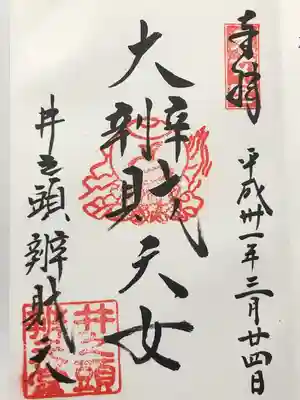 奉拝
平成卅一年三月廿四日
大辨財天女
井之頭辨財天
井之頭